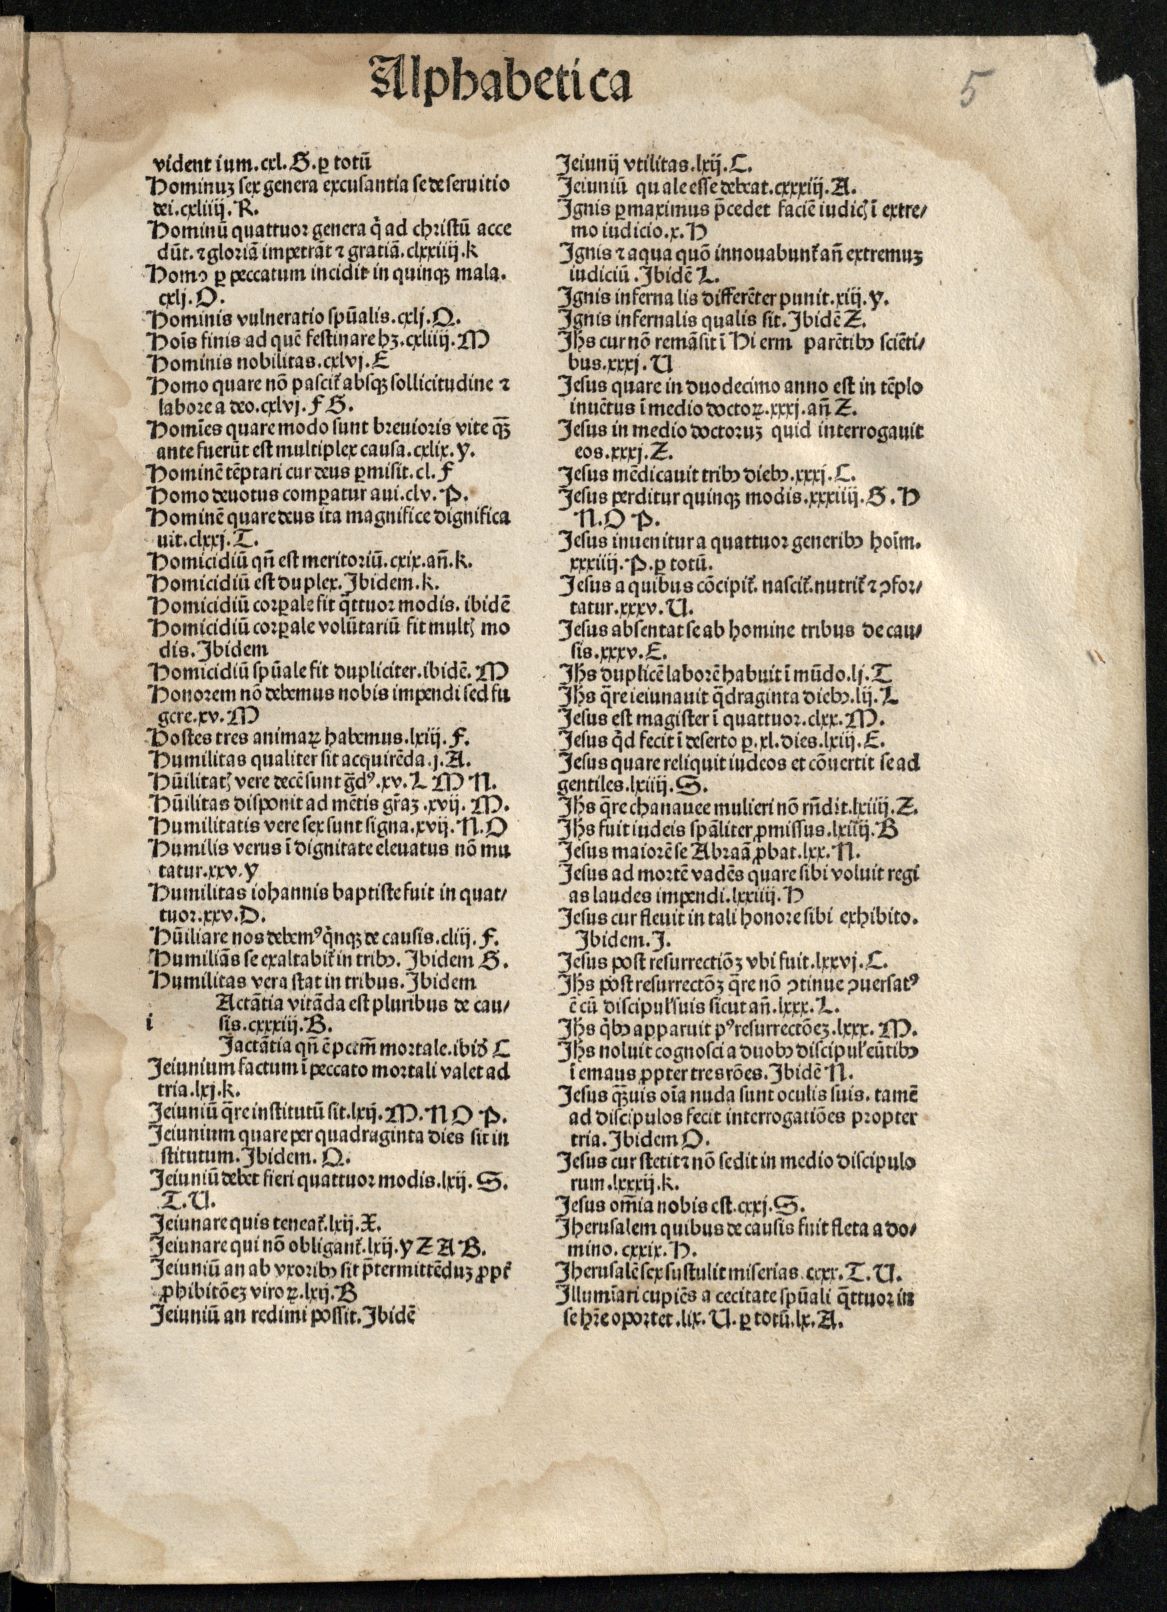 Alphabetica
5
vident ium.cxl.G.ꝑ totū
Hominuꝫ sex genera excusantia se de seruitio
dei.cxliiij.R.
Hominū quattuor genera q̇ ad christū acce
dūt.⁊ gloriā impetrāt ⁊ gratiā.clxxiiij.k
Homo ꝑ peccatum incidit in quinqꝫ mala.
cxlj.O.
Hominis vulneratio spūalis.cxlj.Q.
Hoīs finis ad quē festinare hꝫ.cxliiij.M
Hominis nobilitas.cxlvj.E
Homo quare nō pascit᷑ absqꝫ sollicitudine ⁊
labore a deo.cxlvj.F G.
Homīes quare modo sunt breuioris vite qꝫ̄
ante fuerūt est multiplex causa.cxlix.y.
Hominē tēptari cur deus ꝑmisit.cl.F
Homo deuotus comꝑatur aui.clv.P.
Hominē quare deus ita magnifice dignifica
uit.clxxj.T.
Homicidiū qn̄ est meritoriū.cxix.an̄.k.
Homicidiū est duplex.Ibidem.k.
Homicidiū corꝑale fit q̄ttuor modis.ibidē
Homicidiū corꝑale volūtariū fit multꝭ mo
dis.Ibidem
Homicidiū spūale fit dupliciter.ibidē.M
Honorem nō debemus nobis impendi sed fu
gere.xv.M
Hostes tres animaꝝ habemus.lxiij.F.
Humilitas qualiter sit acquirēda.j.A.
Hūilitatꝭ vere decē sunt ḡdꝰ.xv.L M N.
Hūilitas disponit ad mētis gr̄aꝫ.xvij.M.
Humilitatis vere sex sunt signa.xvij.N.O
Humilis verus ī dignitate eleuatus nō mu
tatur.xxv.y
Humilitas iohannis baptiste fuit in quat/
tuor.xxv.D.
Hūiliare nos debemꝰ q̇nqꝫ de causis.cliij.F.
Humiliās se exaltabit᷑ in tribꝰ.Ibidem G.
Humilitas vera stat in tribus.Ibidem
i
Actātia vitāda est pluribus de cau/
sis.cxxxiij.B.
Iactātia qn̄ ē pctm̄ mortale.ibiđ C
Ieiunium factum ī peccato mortali valet ad
tria.lxj.k.
Ieiuniū q̄re institutū sit.lxij.M.N O P.
Ieiunium quare per quadraginta dies sit in
stitutum.Ibidem.Q.
Ieiuniū debet fieri quattuor modis.lxij.S.
T.U.
Ieiunare quis teneat᷑.lxij.X.
Ieiunare qui nō obligant᷑.lxij.y Z A B.
Ieiuniū an ab vxoribꝰ sit p̄termittēduꝫ ꝓpt᷑
ꝓhibitōeꝫ viroꝝ.lxij.B
Ieiuniū an redimi possit.Ibidē
Ieiunij vtilitas.lxij.C.
Ieiuniū quale esse debeat.cxxxiij.A.
Ignis ꝑmaximus p̄cedet faciē iudicꝭ ī extre/
mo iudicio.x.H
Ignis ⁊ aqua quō innouabunt᷑ an̄ extremuꝫ
iudiciū.Ibidē L.
Ignis infernalis differēter punit.xiij.y.
Ignis infernalis qualis sit.Ibidē Z.
Ihs cur nō remāsit ī Hierm parētibꝰ sciēti/
bus.xxxj.U
Jesus quare in duodecimo anno est in tēplo
inuētus ī medio doctoꝝ.xxxj.an̄ Z.
Jesus in medio doctoruꝫ quid interrogauit
eos.xxxj.Z.
Jesus mēdicauit tribꝰ diebꝰ.xxxj.C.
Jesus perditur quinqꝫ modis.xxxiiij.G.H
N.O P.
Jesus inuenitur a quattuor generibꝰ hoīm.
xxxiiij.P.ꝑ totū.
Jesus a quibus cōcipit᷑.nascit᷑.nutrit᷑ ⁊ ↄfor/
tatur.xxxv.U.
Jesus absentat se ab homine tribus de cau/
sis.xxxv.E.
Ihs duplicē laborē habuit ī mūdo.lj.T
Ihs q̄re ieiunauit q̄draginta diebꝰ.lij.L
Jesus est magister ī quattuor.clxx.M.
Jesus q̇d fecit ī deserto ꝑ.xl.dies.lxiij.E.
Jesus quare reliquit iudeos et cōuertit se ad
gentiles.lxiiij.S.
Ihs q̄re chanauee mulieri nō rn̄dit.lxiiij.Z.
Ihs fuit iudeis spāliter ꝓmissus.lxiiij.B
Jesus maiorē se Abraā ꝓbat.lxx.N.
Jesus ad mortē vadēs quare sibi voluit regi
as laudes impendi.lxxiiij.H
Jesus cur fleuit in tali honore sibi exhibito.
Ibidem.I.
Jesus post resurrectiōꝫ vbi fuit.lxxvj.C.
Ihs post resurrectōꝫ q̄re nō ↄtinue ↄuersatꝰ
ē cū discipul᷑ suis sicut an̄.lxxx.L.
Ihs q̇bꝰ apparuit pꝰ resurrectōeꝫ.lxxx.M.
Ihs noluit cognosci a duobꝰ discipul᷑ eūtibꝰ
ī emaus ꝓpter tres rōes.Ibidē N.
Jesus qꝫ̄uis oīa nuda sunt oculis suis.tamē
ad discipulos fecit interrogatiōes propter
tria.Ibidem O.
Jesus cur stetit ⁊ nō sedit in medio discipulo
rum.lxxxij.k.
Jesus om̄ia nobis est.cxxj.S.
Iherusalem quibus de causis fuit fleta a do/
mino.cxxix.H.
Iherusalē sex sustulit miserias.cxxx.T.U.
Illumīari cupiēs a cecitate spūali q̄ttuor in
se hr̄e oportet.lix.U.ꝑ totū.lx.A.